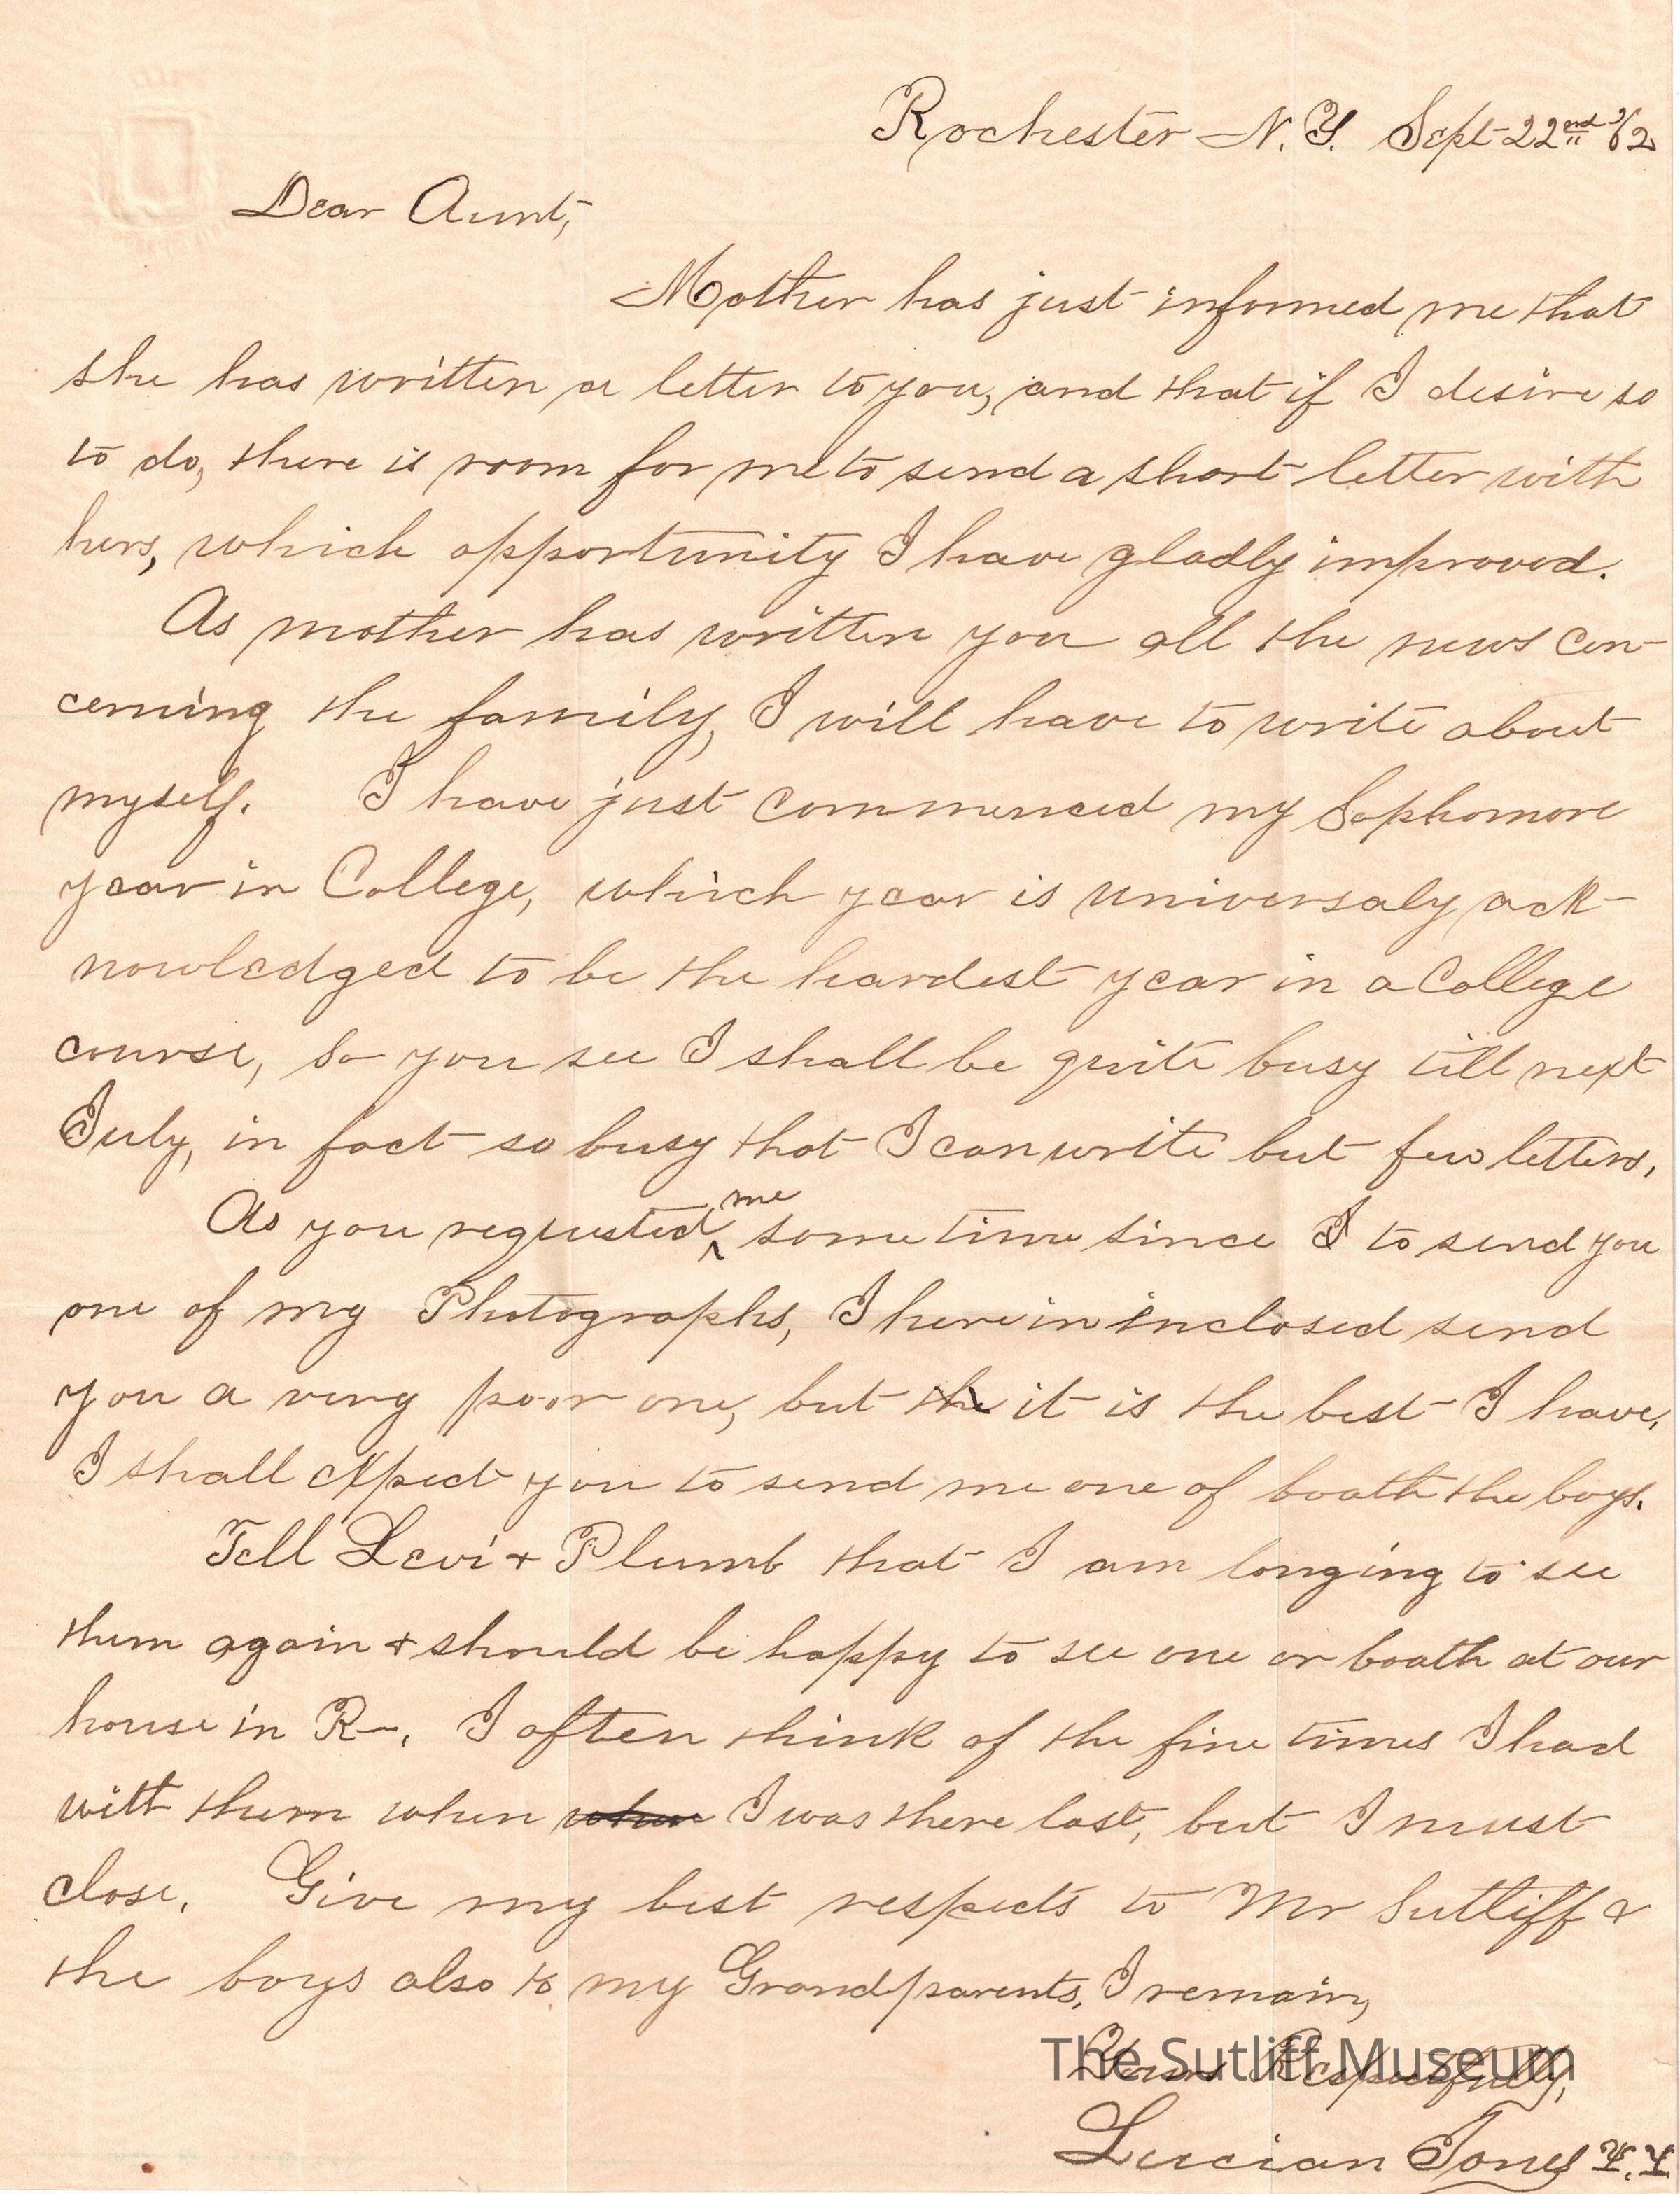 Rochester N.Y. Sept 22nd /62
Dear Aunt,
Mother has just informed me that
she has written a letter to you, and that if I desire so
to do, there is room for me to send a short letter with
hers, which opportunity I have gladly improved.
As mother has written you all the news con-
cerning the family, I will have to write about
myself. I have just commenced my Sophomore
year in College, which year is universaly ack-
nowledged to be the hardest year in a College
course, so you see I shall be quite busy till next
July, in fact so busy that I can write but few letters,
As you requested me some time since I to send you
one of my Photographs, I herein inclosed send
you a very poor one, but the it is the best I have,
I shall expect you to send me one of boath the boys.
Tell Levi & Plumb that I am longing to see
them again & should be happy to see one or boath at our
house in R—. I often think of the fine times I had
with them when when I was there last, but I must
close. Give my best respects to Mr Sutliff &
the boys also to my Grandparents. I remain,
Yours Respectfully,
The Sutliff Museum
Lucian Jones